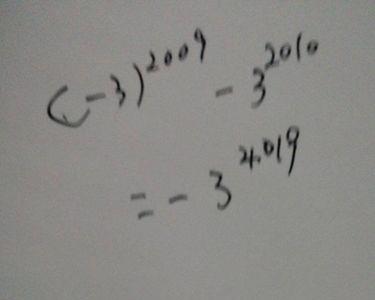 (-3)^2009 - 3^2010
= - 3^4.019